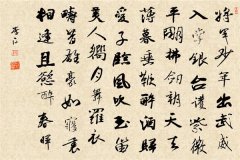 將軍少年出武威
入掌銀臺護紫微
平明拂劍朝天去
薄暮垂鞭醉酒歸
愛子臨風吹玉笛
美人嚮月舞羅衣
疇昔雄豪如夢裏
相逢且欲醉春暉